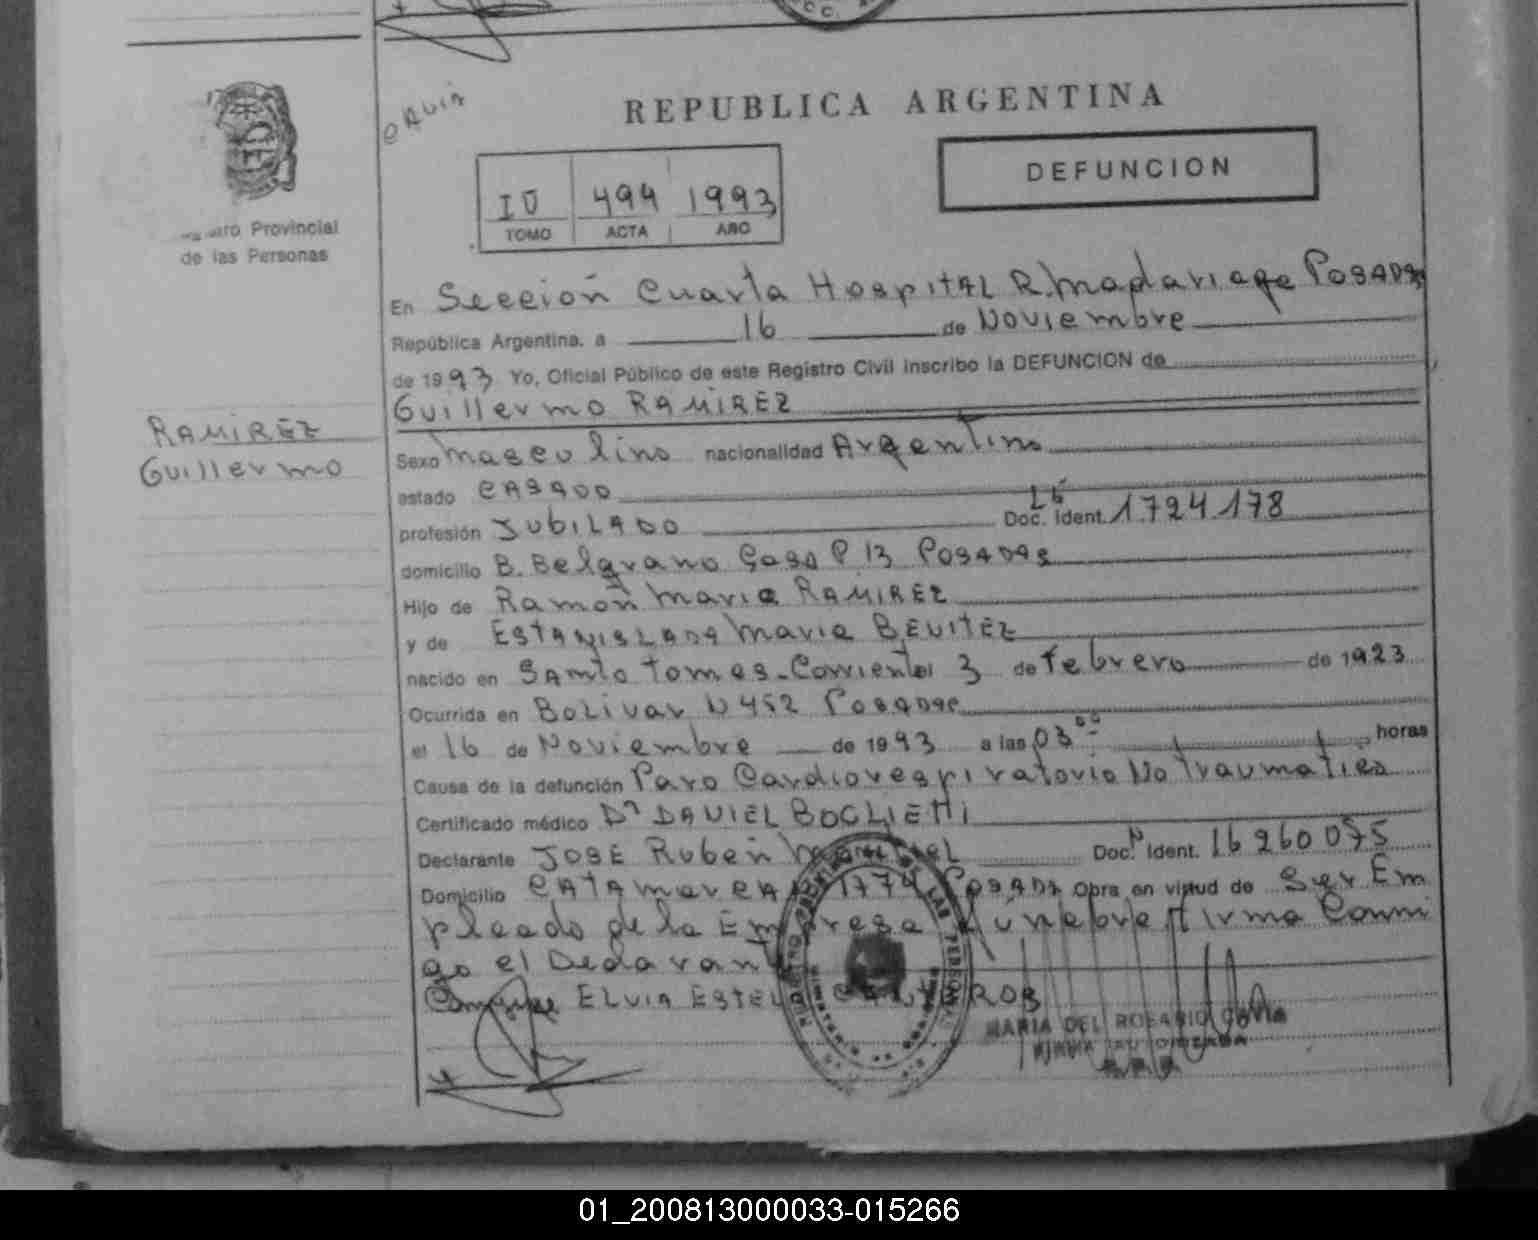 REPUBLICA ARGENTINA
DEFUNCION
IV 494 1993
TOMO ACTA AÑO
Provincial
de las Personas
RAMIREZ
Guillermo
En Sección Cuarta Hospital R. Madariaga Posadas
República Argentina, a 16 de Noviembre
de 1993 Yo, Oficial Público de este Registro Civil inscribo la DEFUNCION de
Guillermo RAMIREZ
Sexo masculino nacionalidad Argentino
estado CASADO
profesión JUBILADO Doc. Ident. 1.724.178
domicilio B. Belgrano Casa P 13 POSADAS
Hijo de Ramón Maria RAMIREZ
y de ESTANISLADA Maria BENITEZ
nacido en Santo Tomes - Corrientes 3 de Febrero de 1923
Ocurrida en Bolivar N 452 Posadas
el 16 de Noviembre de 1993 a las 03 00 horas
Causa de la defunción Paro Cardiorespiratorio No traumatico
Certificado médico Dr DANIEL BOGLIETTI
Declarante JOSE Ruben Doc. N Ident. 16 260 075
Domicilio CATAMARCA 1774 POSADA Obra en virtud de Ser Em
pleado de la Empresa Funebre Firma Conmi
go el Declarante
Conyuge ELVIA ESTELA
MARIA DEL ROSARIO
FIRMA AUTORIZADA
01_200813000033-015266